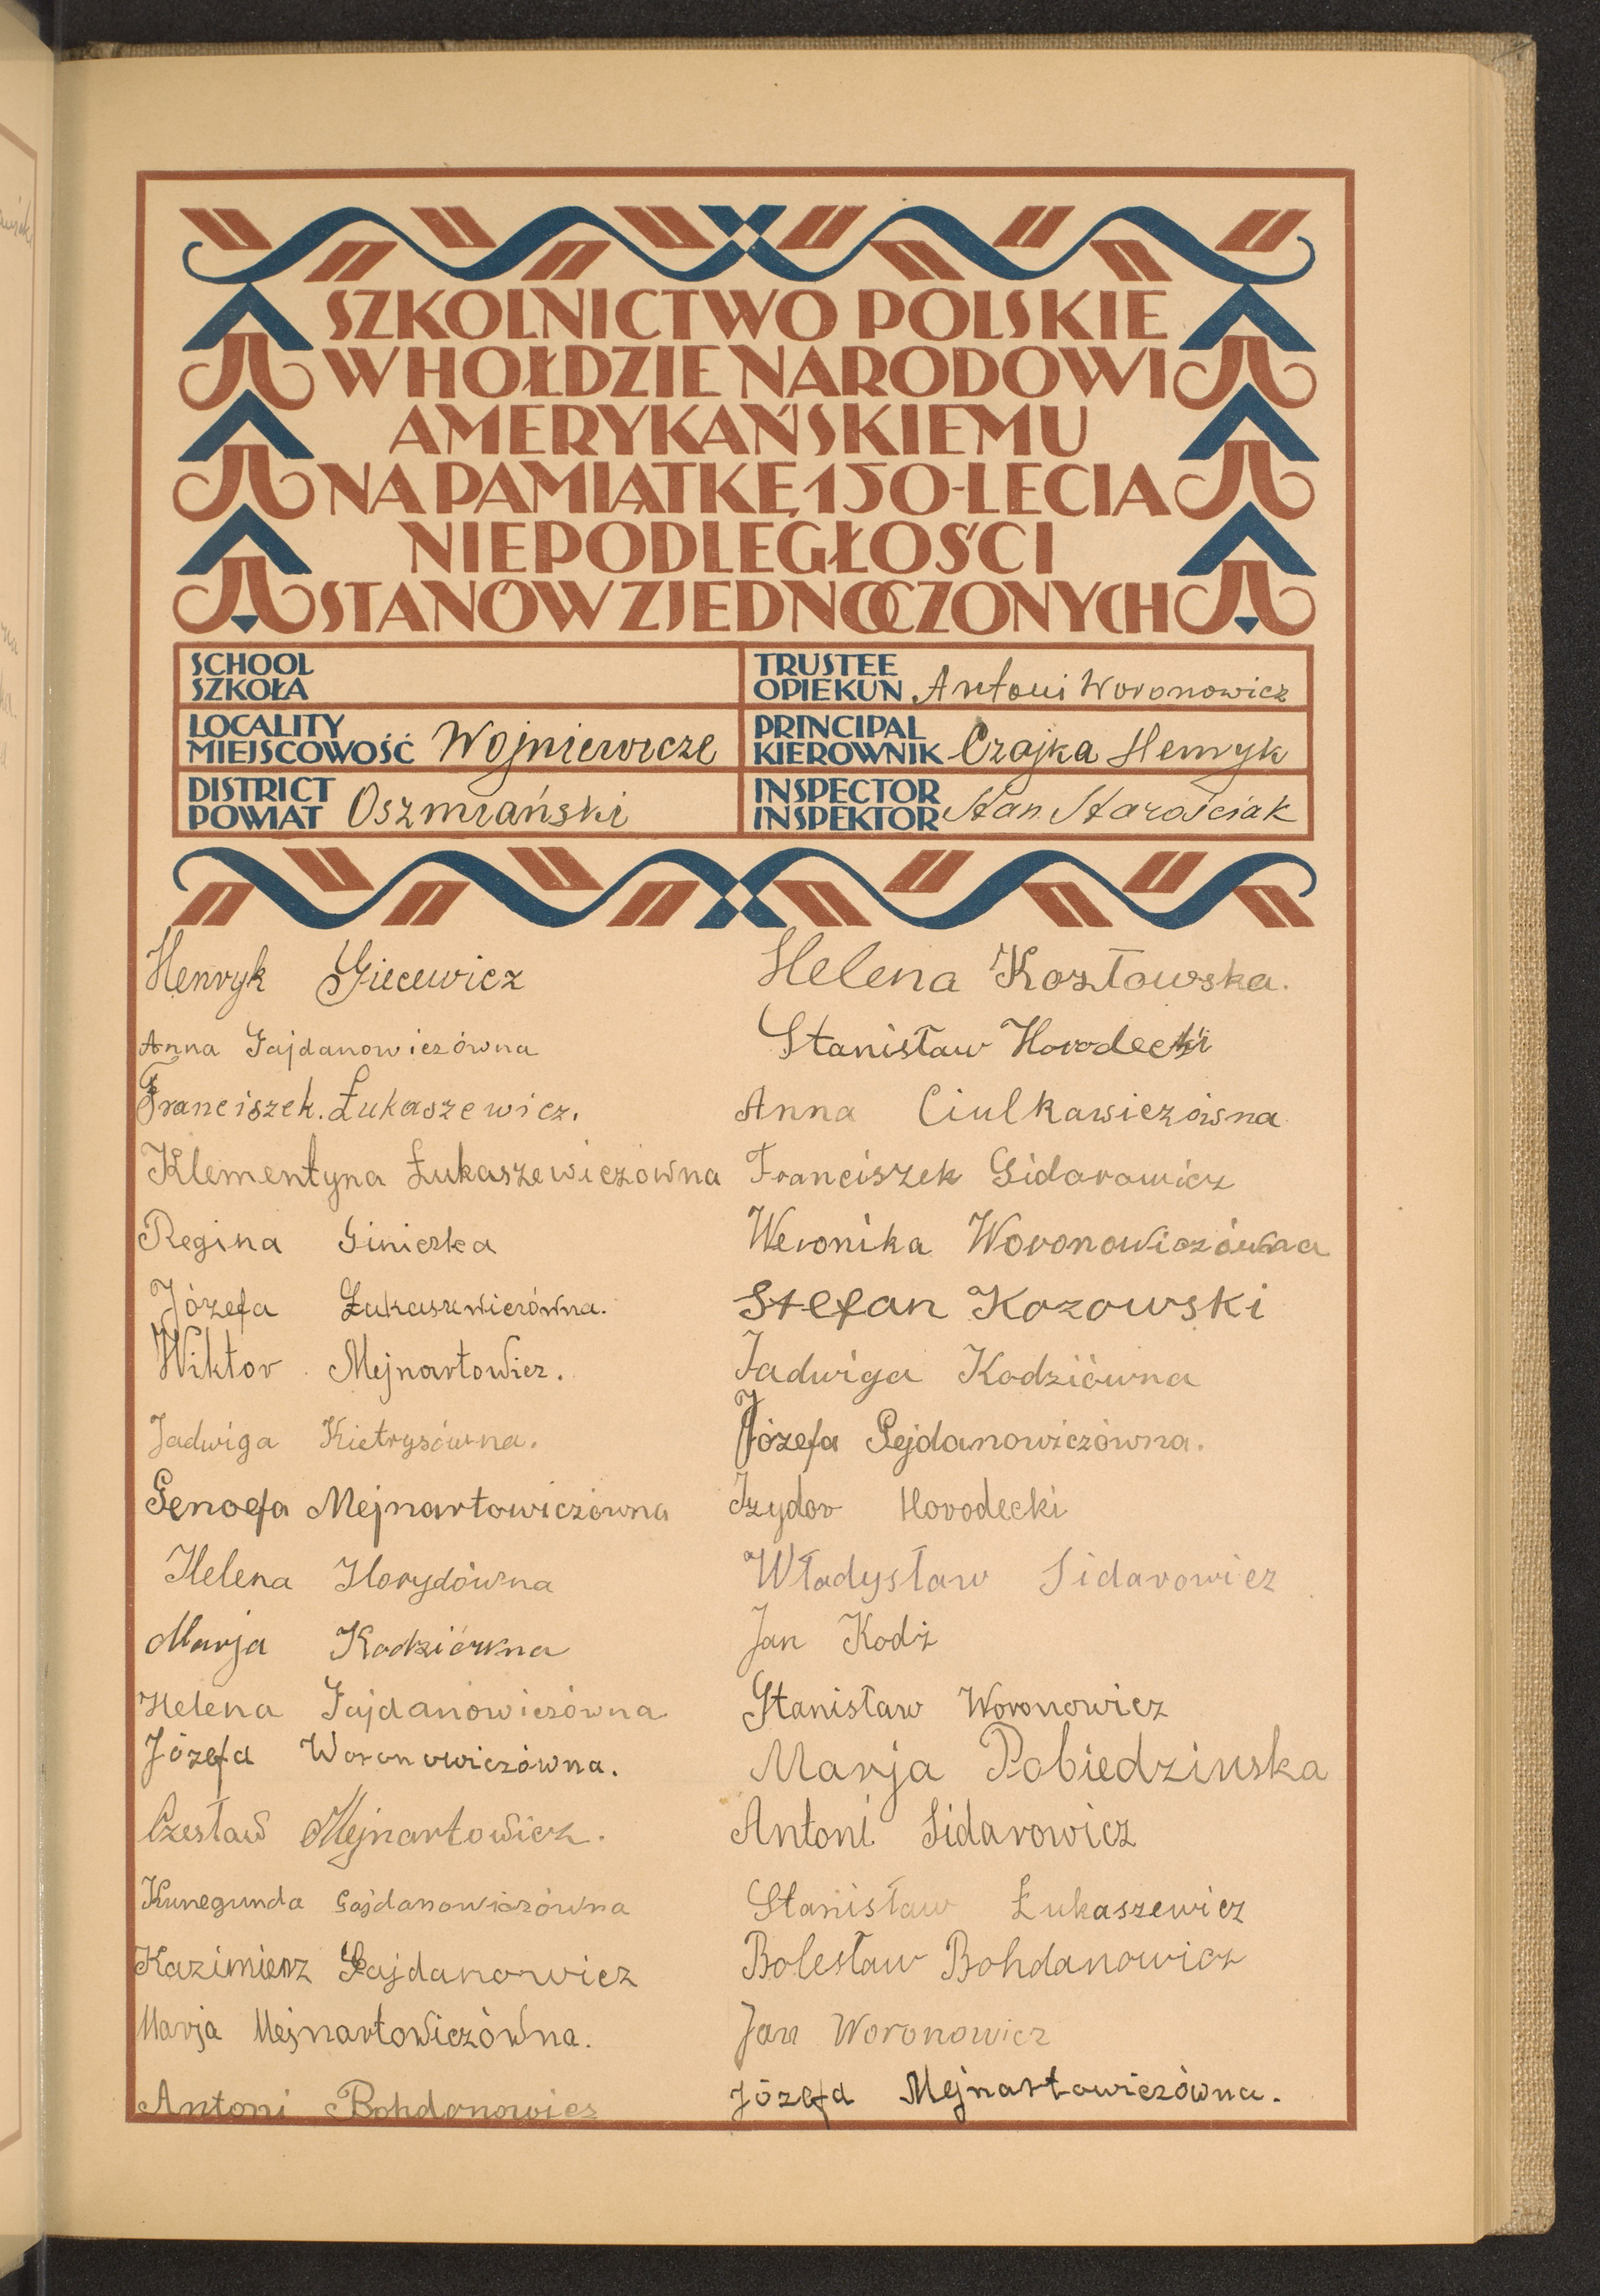 SZKOLNICTWO POLSKIE
W HOŁDZIE NARODOWI
AMERYKAŃSKIEMU
NA PAMIĄTKĘ 150-LECIA
NIEPODLEGŁOŚCI
STANÓW ZJEDNOCZONYCH
SCHOOL
SZKOŁA
TRUSTEE
OPIEKUN Antoni Woronowicz
LOCALITY
MIEJSCOWOŚĆ Wojniewicze
PRINCIPAL
KIEROWNIK Czajka Henryk
DISTRICT
POWIAT Oszmiański
INSPECTOR
INSPEKTOR Stan. Starościak
Henryk Giecewicz
Anna Gajdanowiczówna
Franciszek. Łukaszewicz.
Klementyna Łukaszewiczówna
Regina Giniezka
Józefa Łukaszewiczówna.
Wiktor Mejnartowicz.
Jadwiga Kietrysówna.
Genoefa Mejnartowiczówna
Helena Horydówna
Marja Kodziówna
Helena Gajdanowiczówna
Józefa Woronowiczówna.
Czesław Mejnartowicz.
Kunegunda Gajdanowiczówna
Kazimierz Gajdanowicz
Marja Mejnartowiczówna.
Antoni Bohdanowicz
Helena Kozłowska.
Stanisław Horodecki
Anna Ciulkawiczówna
Franciszek Sidarowicz
Weronika Woronowiczówna
Stefan Kozowski
Jadwiga Kodziówna
Józefa Pejdanowiczówna.
Izydor Horodecki
Władysław Sidarowicz
Jan Kodź
Stanisław Woronowicz
Marja Pobiedzinska
Antoni Sidarowicz
Stanisław Łukaszewicz
Bolesław Bohdanowicz
Jan Woronowicz
Józefa Mejnartowiczówna.